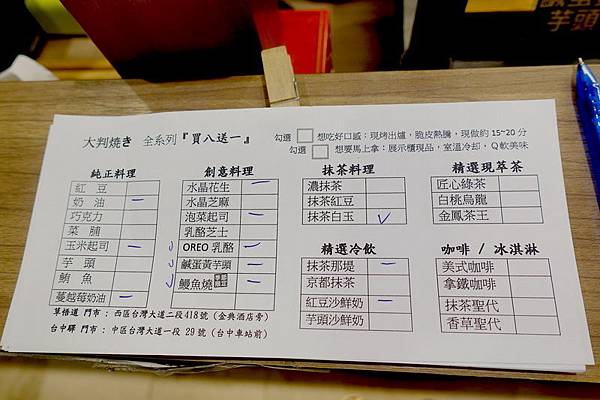 芋頭
大判燒き 全系列『買八送一』
勾選 想吃好口感：現烤出爐，脆皮熱騰，現做約 15~20 分
勾選 想要馬上拿：展示櫃現品，室溫冷却，Q軟美味
純正料理
紅 豆
奶 油
巧克力
菜 脯
玉米起司
芋 頭
鮪 魚
蔓越莓奶油
創意料理
水晶花生
水晶芝麻
泡菜起司
乳酪芝士
OREO 乳酪
鹹蛋黃芋頭
鰻魚燒
抹茶料理
濃抹茶
抹茶紅豆
抹茶白玉
精選冷飲
抹茶那堤
京都抹茶
紅豆沙鮮奶
芋頭沙鮮奶
精選現萃茶
匠心綠茶
白桃烏龍
金鳳茶王
咖啡 / 冰淇淋
美式咖啡
拿鐵咖啡
抹茶聖代
香草聖代
草悟道 門市 : 西區台灣大道二段418號（金典酒店旁）
台中驛 門市 : 中區台灣大道一段 29 號（台中車站前）